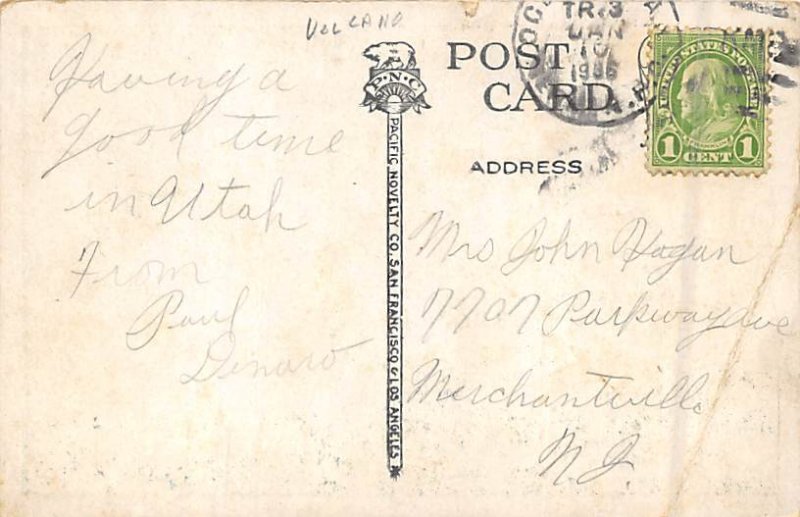 VOLCANO
Having a
good time
in Utah
From
Paul
Denaro
P.N.C.
PACIFIC NOVELTY CO. SAN FRANCISCO & LOS ANGELES
POST
CARD
ADDRESS
TR. 3
JAN
10
1936
UNITED STATES POSTAGE
FRANKLIN
1 CENT 1
Mrs John Hagan
7707 Parkway ave
Merchantville
N.J